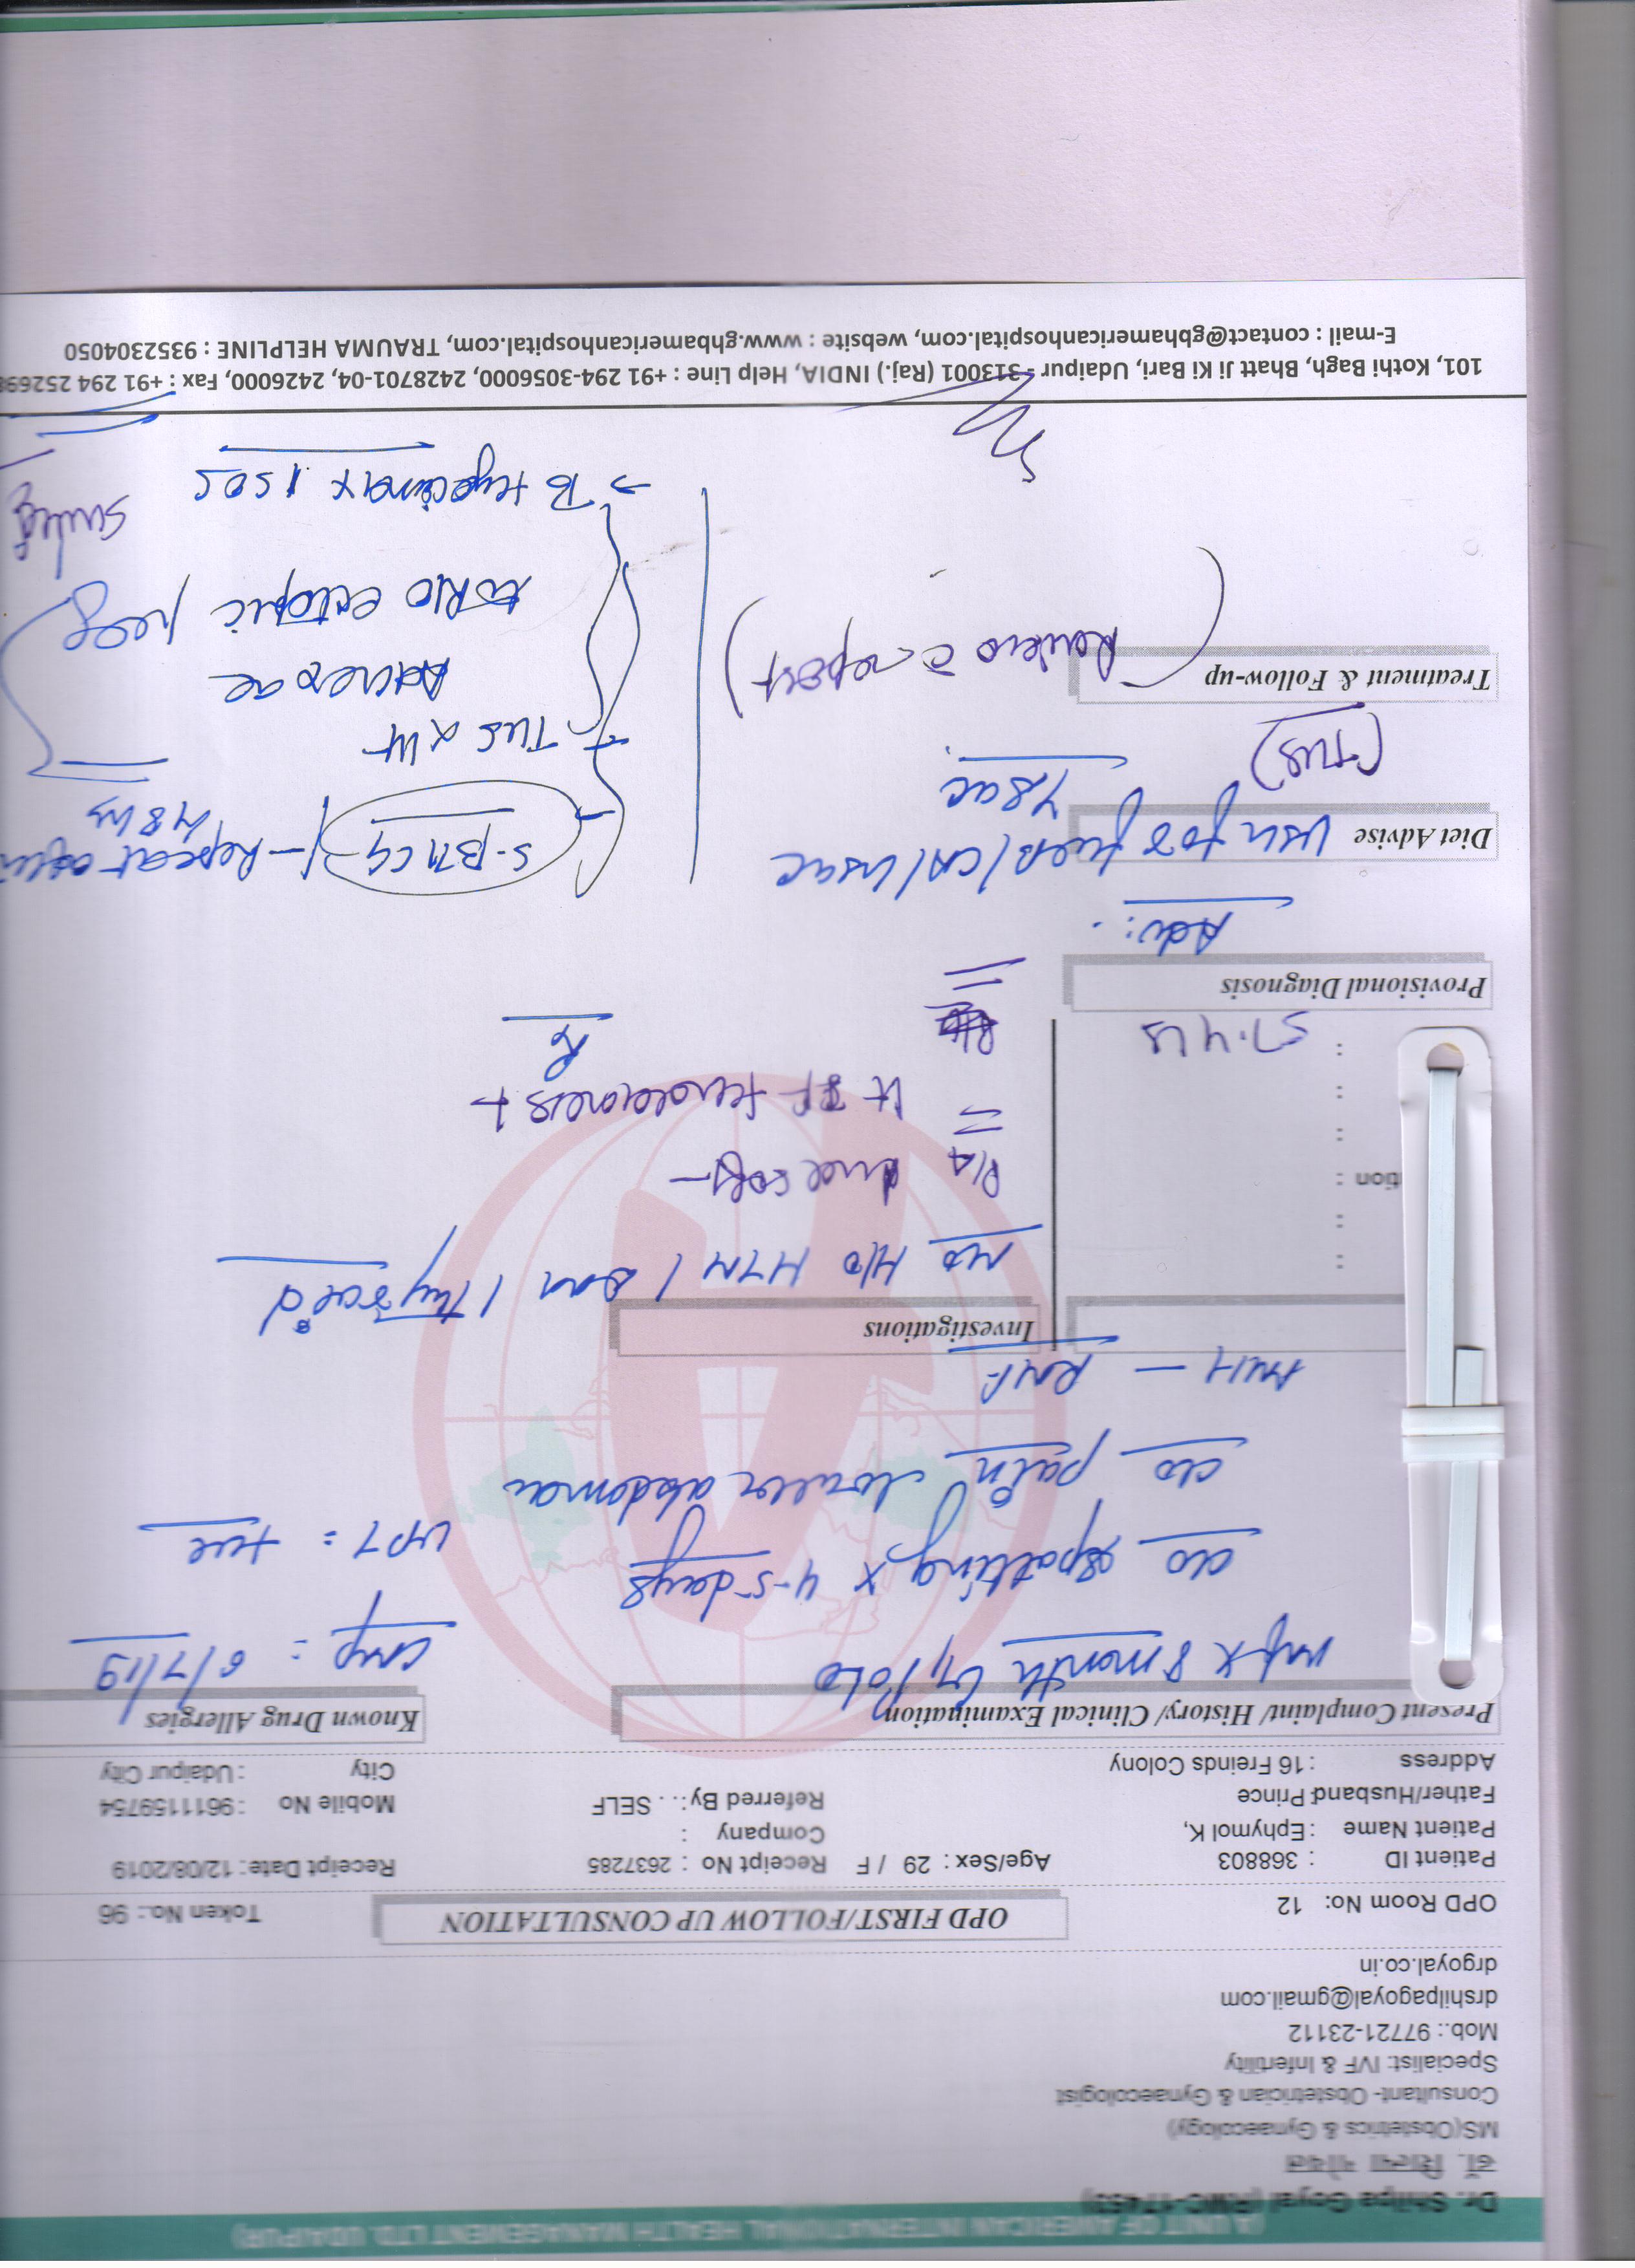 (A UNIT OF AMERICAN INTERNATIONAL HEALTH MANAGEMENT LTD. UDAIPUR)
Dr. Shilpa Goyal
डॉ. शिल्पा गोयल
MS(Obstetrics & Gynaecology)
Consultant- Obstetrician & Gynaecologist
Specialist: IVF & Infertility
Mob.: 97721-23112
drshilpagoyal@gmail.com
drgoyal.co.in
OPD Room No: 12
OPD FIRST/FOLLOW UP CONSULTATION
Token No.: 96
Patient ID : 368803 Age/Sex : 29 / F Receipt No : 2637285 Receipt Date: 12/08/2019
Patient Name : Ephymol K, Company :
Father/Husband: Prince Referred By: . . SELF Mobile No : 9611159754
Address : 16 Freinds Colony City : Udaipur City
Present Complaint/ History/ Clinical Examination
Known Drug Allergies
x 8 month G1P0L0
LMP = 6/7/19
c/o spotting x 4-5 days
UPT = +ve
c/o pain lower abdomen
M/H - RMF
Investigations
No H/O HTN / DM / Thyroid
P/A
tion :
57.4
Rx
Provisional Diagnosis
Adv:
Diet Advise
USG for
(TVS)
S-BHCG - Repeat after 48 hrs
TVS
R/o ectopic preg
Treatment & Follow-up
(Review c report)
101, Kothi Bagh, Bhatt Ji Ki Bari, Udaipur - 313001 (Raj.) INDIA, Help Line : +91 294-3056000, 2428701-04, 2426000, Fax : +91 294 252698
E-mail : contact@gbhamericanhospital.com, website : www.ghbamericanhospital.com, TRAUMA HELPLINE : 9352304050